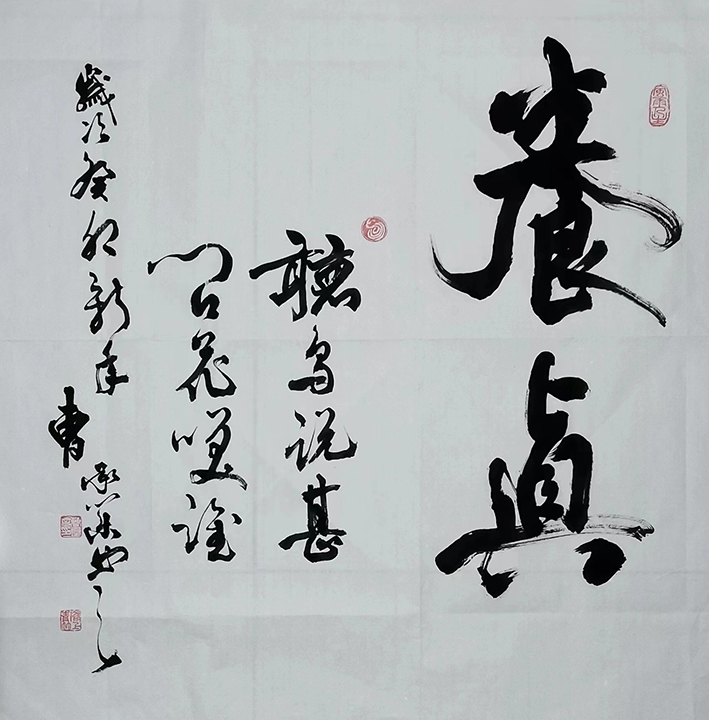 養真
聽鳥說甚
問花笑誰
歲次癸卯新年
曹